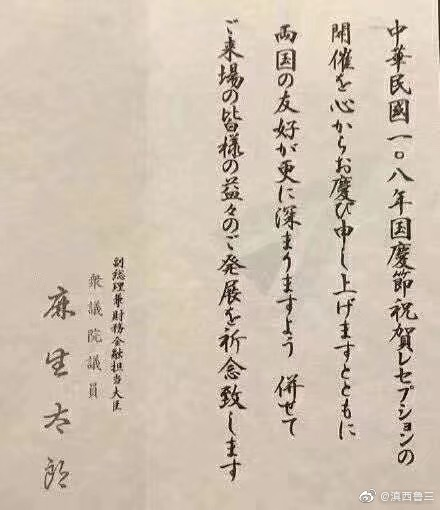 中華民國一〇八年国慶節祝賀レセプションの
開催を心からお慶び申し上げますとともに
両国の友好が更に深まりますよう 併せて
ご来場の皆様の益々のご発展を祈念致します
副総理兼財務金融担当大臣
衆議院議員
麻生太郎
@滇西鲁三